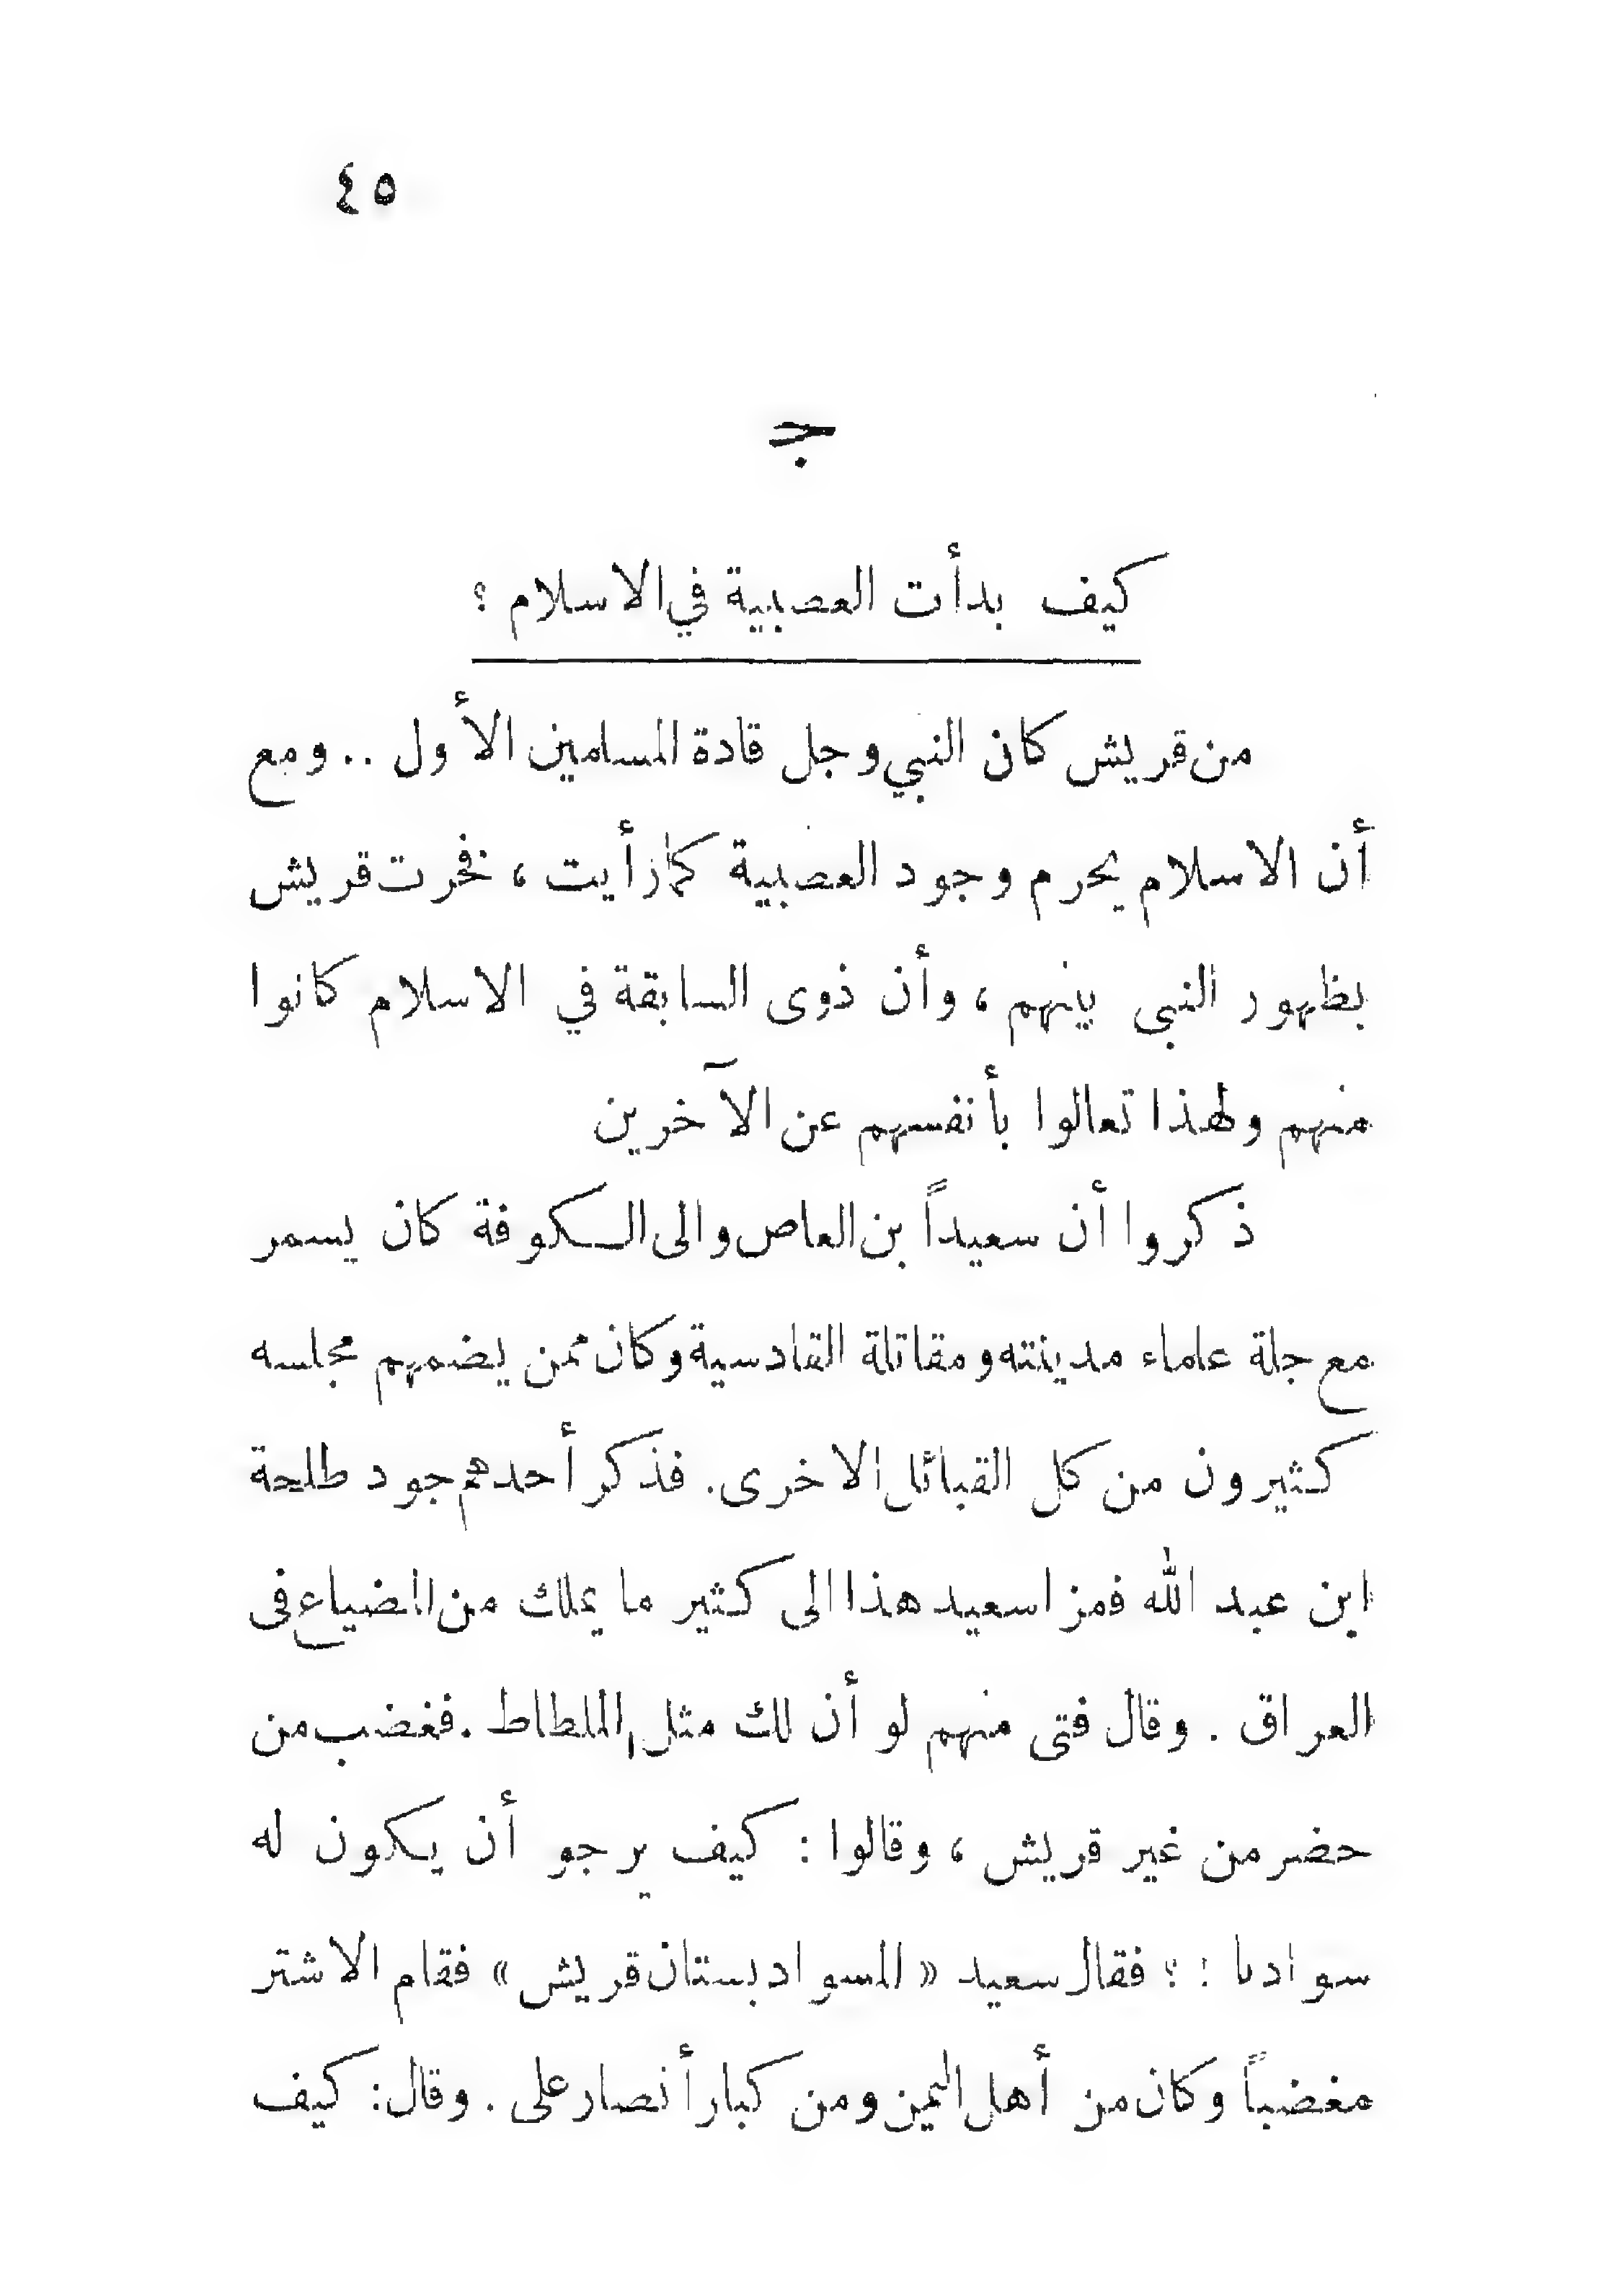 ٤٥
جـ
كيف بدأت العصبية في الاسلام ؟
من قريش كان النبي وجل قادة المسلمين الأول .. ومع
أن الاسلام يحرم وجود العصبية كما رأيت ، فخرت قريش
بظهور النبي بينهم ، وأن ذوى السابقة في الاسلام كانوا
منهم ولهذا تعالوا بأنفسهم عن الآخرين
ذكروا أن سعيداً بن العاص والى الكوفة كان يسمر
مع جلة علماء مدينته ومقاتلة القادسية وكان ممن يضمهم مجلسه
كثيرون من كل القبائل الاخرى. فذكر أحدهم جود طلحة
ابن عبد الله فعزا سعيد هذا الى كثير ما يملك من الضياع فى
العراق . وقال فتى منهم لو أن لك مثل الملطاط . فغضب من
حضر من غير قريش ، وقالوا : كيف يرجو أن يكون له
سوادنا ! ؟ فقال سعيد « السواد بستان قريش » فقام الاشتر
مغضباً وكان من أهل اليمن ومن كبار أنصار على . وقال: كيف